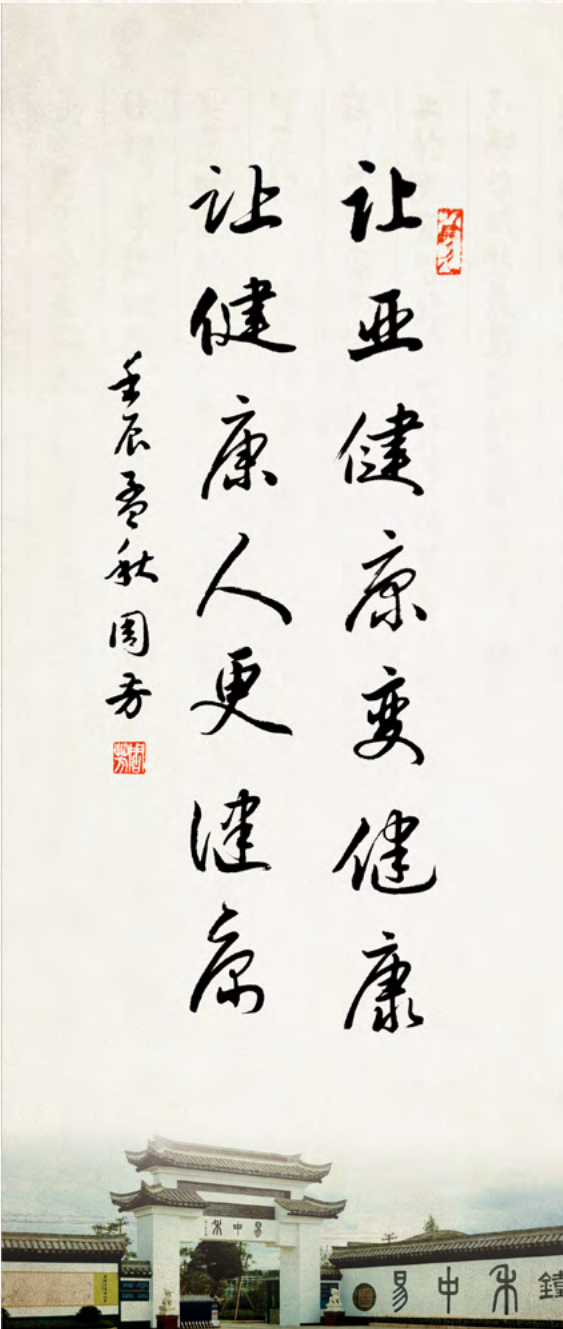 让亚健康变健康
让健康人更健康
壬辰孟秋周芳
周芳
易中禾
易中禾